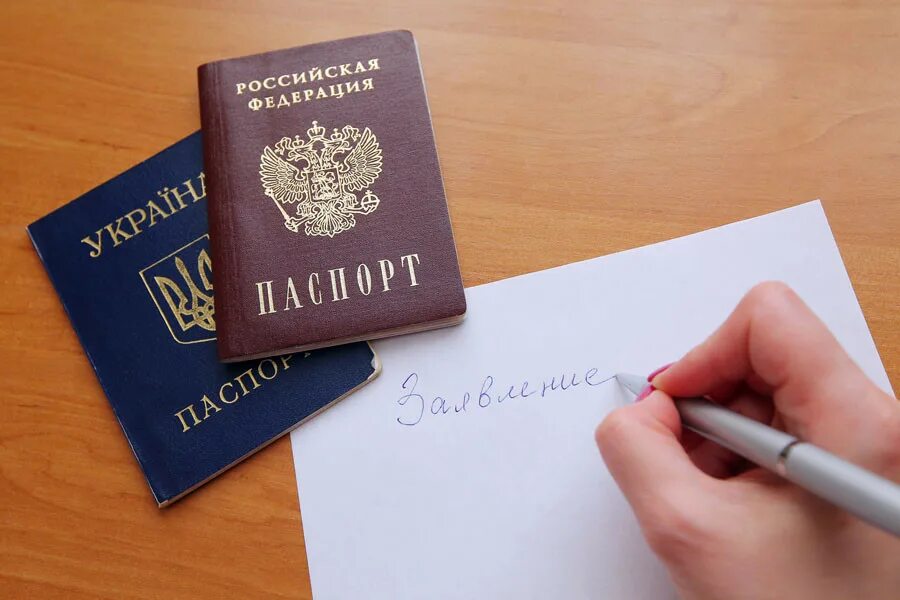 РОССИЙСКАЯ
ФЕДЕРАЦИЯ
ПАСПОРТ
УКРАЇНА
ПАСПОРТ
Заявление